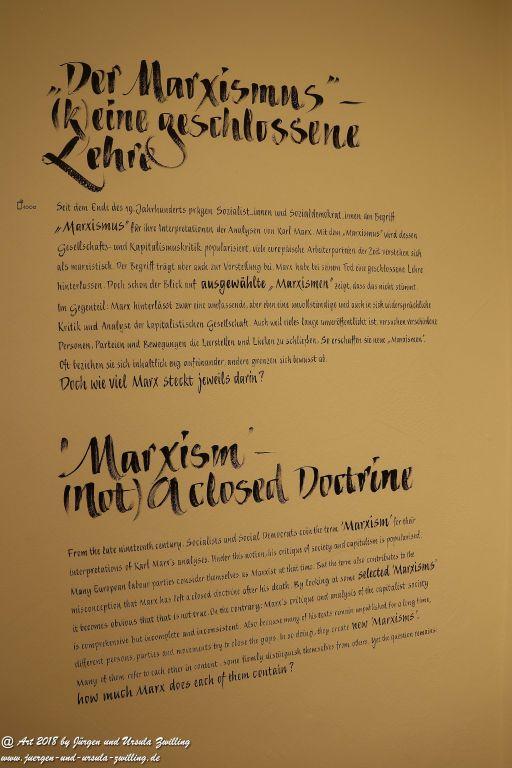 „Der Marxismus" –
(k)eine geschlossene
Lehre
Seit dem Ende des 19. Jahrhunderts prägen Sozialist_innen und Sozialdemokrat_innen den Begriff
„Marxismus" für ihre Interpretationen der Analysen von Karl Marx. Mit dem „Marxismus" wird dessen
Gesellschafts- und Kapitalismuskritik popularisiert, viele europäische Arbeiterparteien der Zeit verstehen sich
als marxistisch. Der Begriff trägt aber auch zur Vorstellung bei, Marx habe bei seinem Tod eine geschlossene Lehre
hinterlassen. Doch schon der Blick auf ausgewählte „Marxismen" zeigt, dass das nicht stimmt.
Im Gegenteil: Marx hinterlässt zwar eine umfassende, aber eben eine unvollständige und auch in sich widersprüchliche
Kritik und Analyse der kapitalistischen Gesellschaft. Auch weil vieles lange unveröffentlicht ist, versuchen verschiedene
Personen, Parteien und Bewegungen die Leerstellen und Lücken zu schließen. So erschaffen sie neue „Marxismen".
Oft beziehen sie sich inhaltlich eng aufeinander, andere grenzen sich bewusst ab.
Doch wie viel Marx steckt jeweils darin?
'Marxism' –
(not) a closed Doctrine
From the late nineteenth century, Socialists and Social Democrats coin the term 'Marxism' for their
interpretations of Karl Marx's analyses. Under this notion, his critique of society and capitalism is popularised.
Many European labour parties consider themselves as Marxist at that time. But the term also contributes to the
misconception that Marx has left a closed doctrine after his death. By looking at some selected 'Marxisms'
it becomes obvious that that is not true. On the contrary: Marx's critique and analysis of the capitalist society
is comprehensive but incomplete and inconsistent. Also because many of his texts remain unpublished for a long time,
different persons, parties and movements try to close the gaps. In so doing, they create new 'Marxisms'.
Many of them refer to each other in content, some firmly distinguish themselves from others. Yet the question remains:
how much Marx does each of them contain?
@ Art 2018 by Jürgen und Ursula Zwilling
www.juergen-und-ursula-zwilling.de